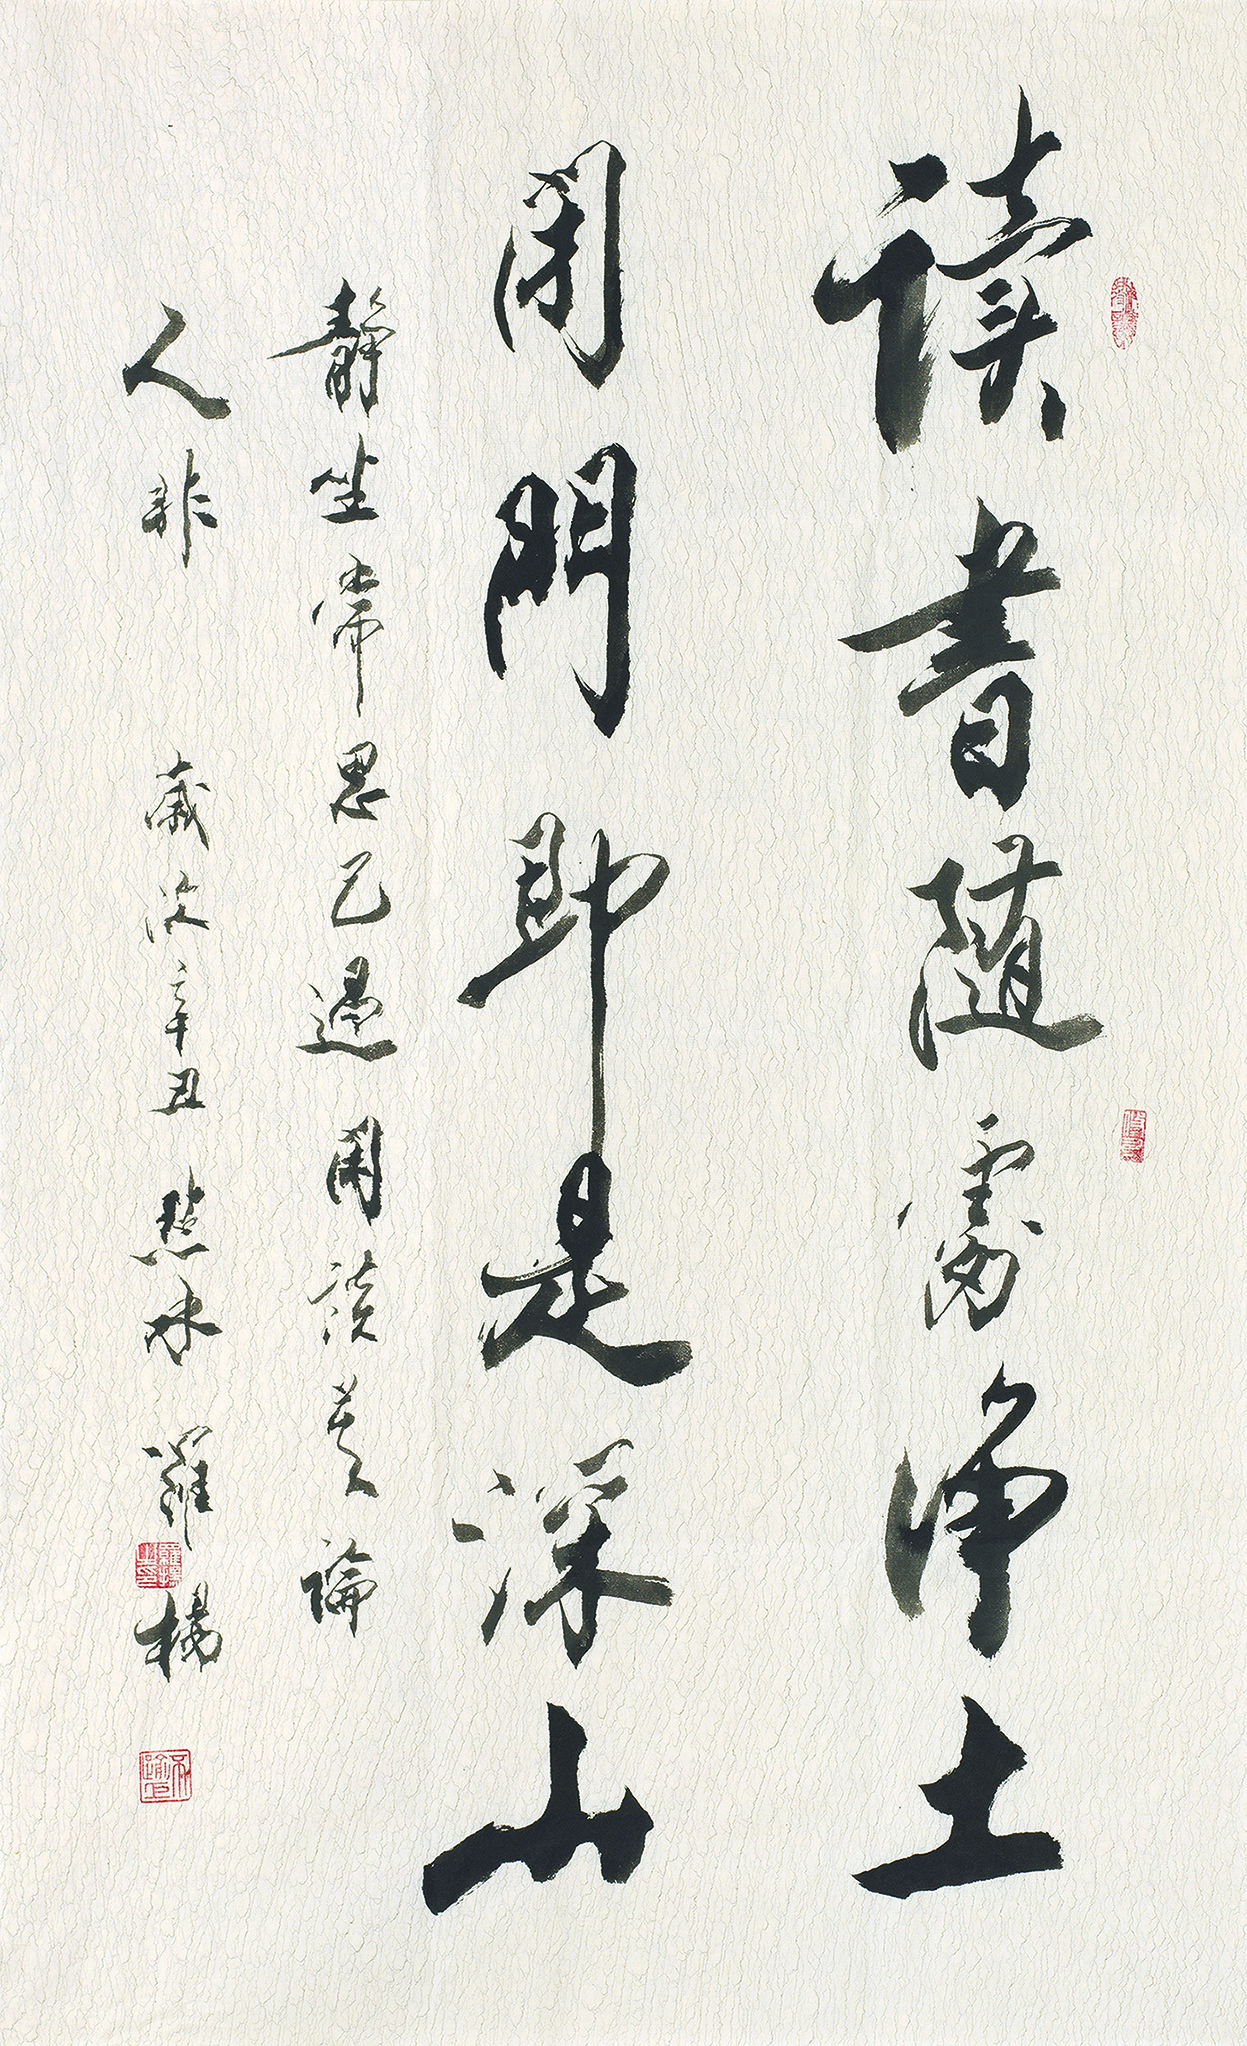 读書随處淨土
閉門即是深山
静坐常思己過閑談莫論
人非 歲次辛丑 羅楊